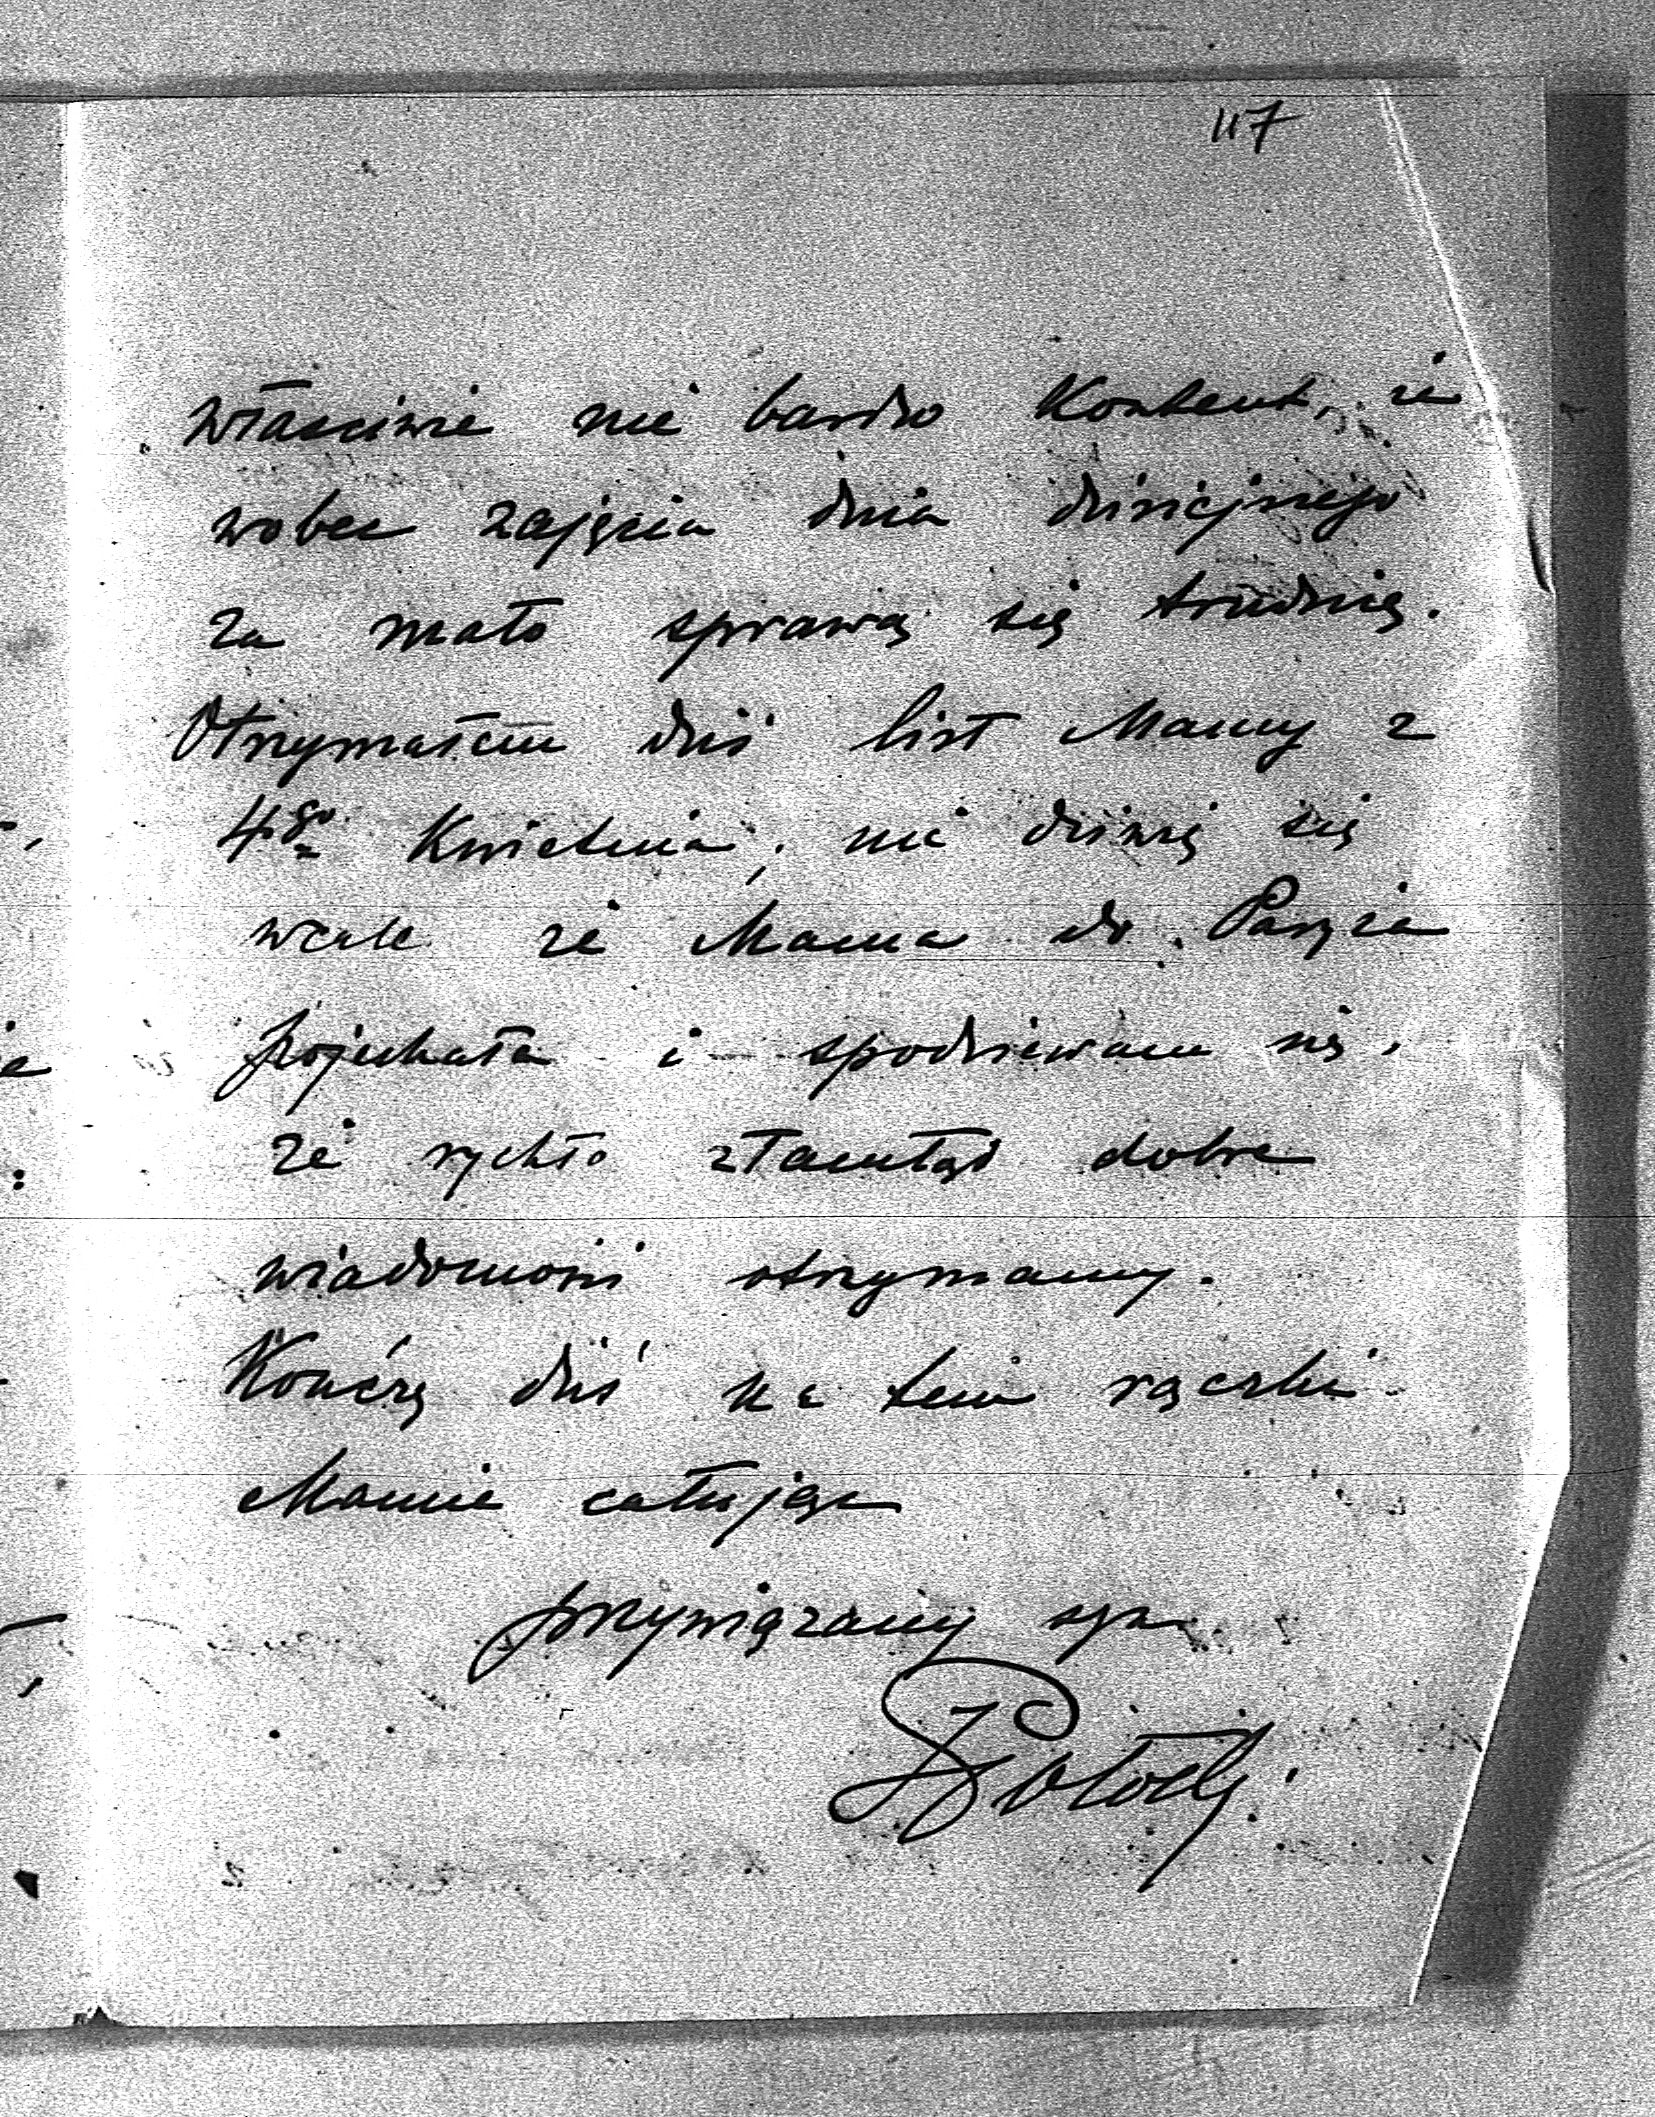 117
właściwie nie bardzo kontent, że
wobec zajęcia dnia dzisiejszego
za mało sprawą się trudnię.
Otrzymałem dziś list Mamy z
4go Kwietnia, nie dziwię się
wcale że Mama do Paryża
pojechała i spodziewam się,
że rychło ztamtąd dobre
wiadomości otrzymamy.
Kończę dziś na tem rączki
Mamie całując
przywiązany syn
Potocki